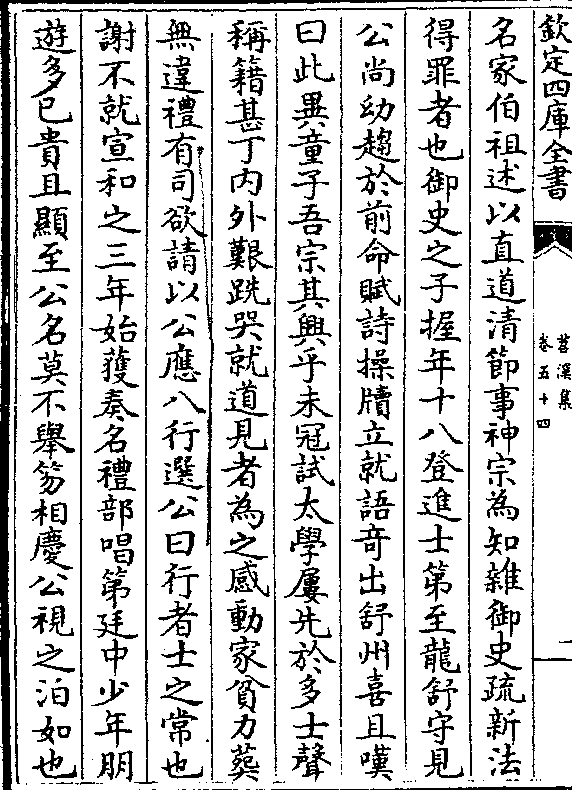 欽定四庫全書
苕溪集
卷五十四
一
名家伯祖述以直道清節事神宗為知雜御史疏新法
得罪者也御史之子握年十八登進士第至龍舒守見
公尚幼趨於前命賦詩操牘立就語竒出舒州喜且嘆
曰此異童子吾宗其興乎未冠試太學屢先於多士聲
稱籍甚丁内外艱跣哭就道見者為之感動家貧力葬
無違禮有司欲請以公應八行選公曰行者士之常也
謝不就宣和之三年始獲奏名禮部唱第廷中少年朋
遊多已貴且顯至公名莫不舉笏相慶公視之泊如也